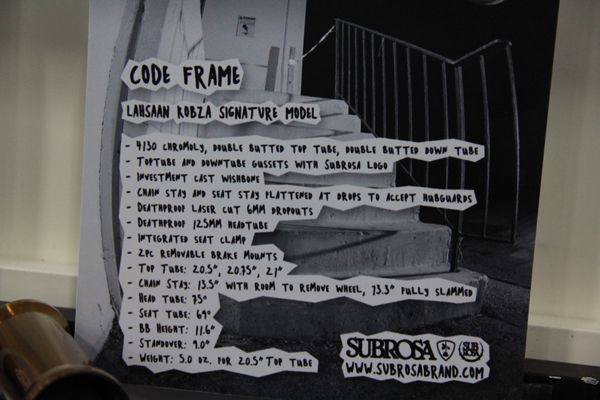 CODE FRAME
LAHSAAN KOBZA SIGNATURE MODEL
- 4130 CHROMOLY, DOUBLE BUTTED TOP TUBE, DOUBLE BUTTED DOWN TUBE
- TOPTUBE AND DOWNTUBE GUSSETS WITH SUBROSA LOGO
- INVESTMENT CAST WISHBONE
- CHAIN STAY AND SEAT STAY FLATTENED AT DROPS TO ACCEPT HUBGUARDS
- DEATHPROOF LASER CUT 6MM DROPOUTS
- DEATHPROOF 125MM HEADTUBE
- INTEGRATED SEAT CLAMP
- 2PC REMOVABLE BRAKE MOUNTS
- TOP TUBE: 20.5", 20.75", 21"
- CHAIN STAY: 13.5" WITH ROOM TO REMOVE WHEEL, 13.3" FULLY SLAMMED
- HEAD TUBE: 75°
- SEAT TUBE: 69°
- BB HEIGHT: 11.6"
- STANDOVER: 9.0"
- WEIGHT: 5.0 OZ. FOR 20.5" TOP TUBE
SUBROSA SUB ROSA
WWW.SUBROSABRAND.COM